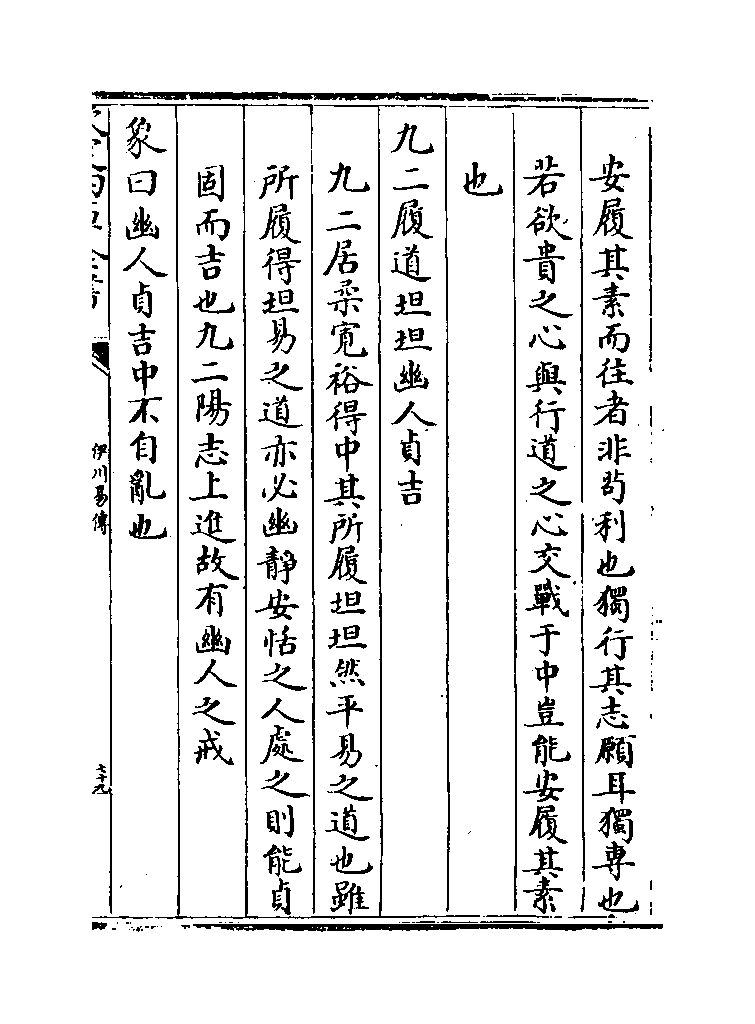 安履其素而往者非茍利也獨行其志願耳獨専也
若欲貴之心與行道之心交戰于中豈能安履其素
也
九二履道坦坦幽人貞吉
九二居柔寛裕得中其所履坦坦然平易之道也雖
所履得坦易之道亦必幽靜安恬之人處之則能貞
固而吉也九二陽志上進故有幽人之戒
象曰幽人貞吉中不自亂也
伊川易傳
七十九